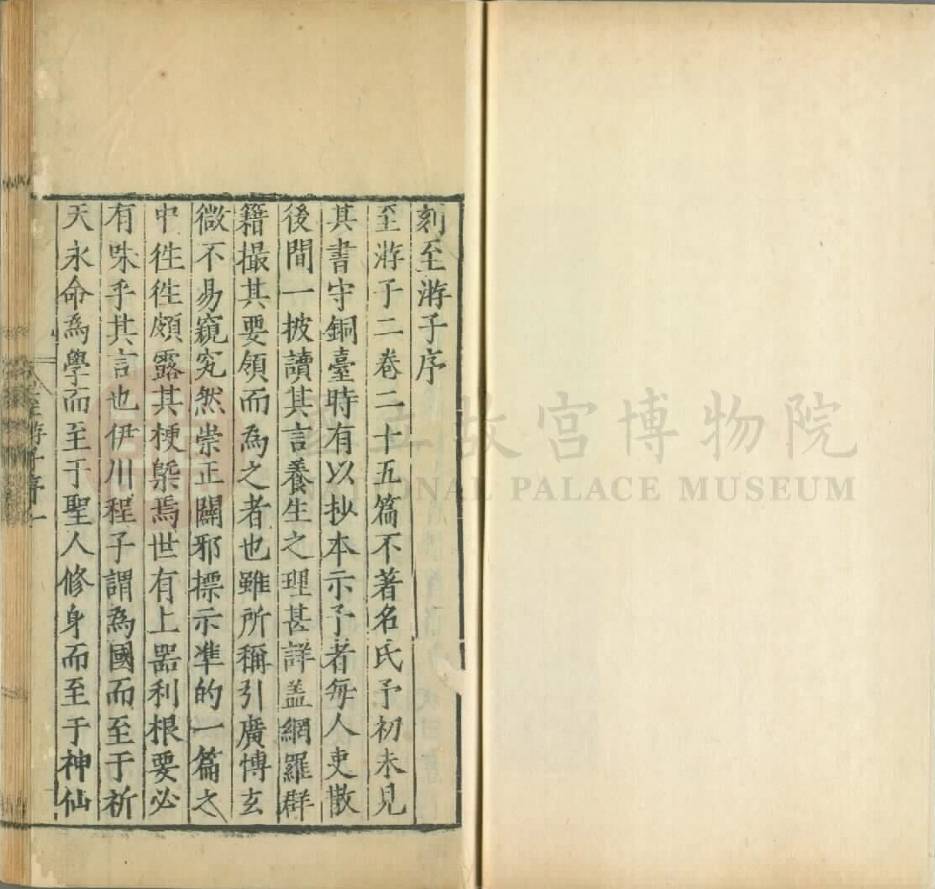 刻至游子序
至游子二卷二十五篇不著名氏予初未見
其書守銅臺時有以抄本示予者每人吏散
後間一披讀其言養生之理甚詳盖網羅群
籍撮其要領而為之者也雖所稱引廣博玄
微不易窺究然崇正闢邪標示準的一篇之
中徃徃頗露其梗槩焉世有上器利根要必
有味乎其言也伊川程子謂為國而至于祈
天永命為學而至于聖人修身而至于神仙
至游子序 一
故宮博物院
NATIONAL PALACE MUSEUM